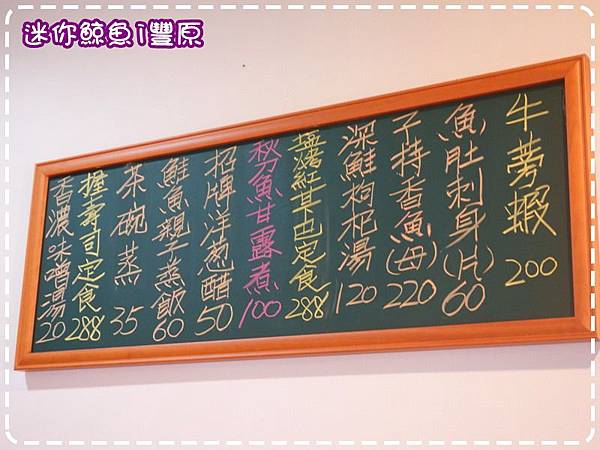 迷你鯨魚i豐原
牛蒡蝦 200
魚肚刺身(片) 60
子持香魚(母) 220
深鮭枸杞湯 120
鹽烤紅甘下巴定食 288
秋刀魚甘露煮 100
招牌洋葱醋 50
鮭魚親子蒸飯 60
茶碗蒸 35
握壽司定食 288
香濃味噌湯 20